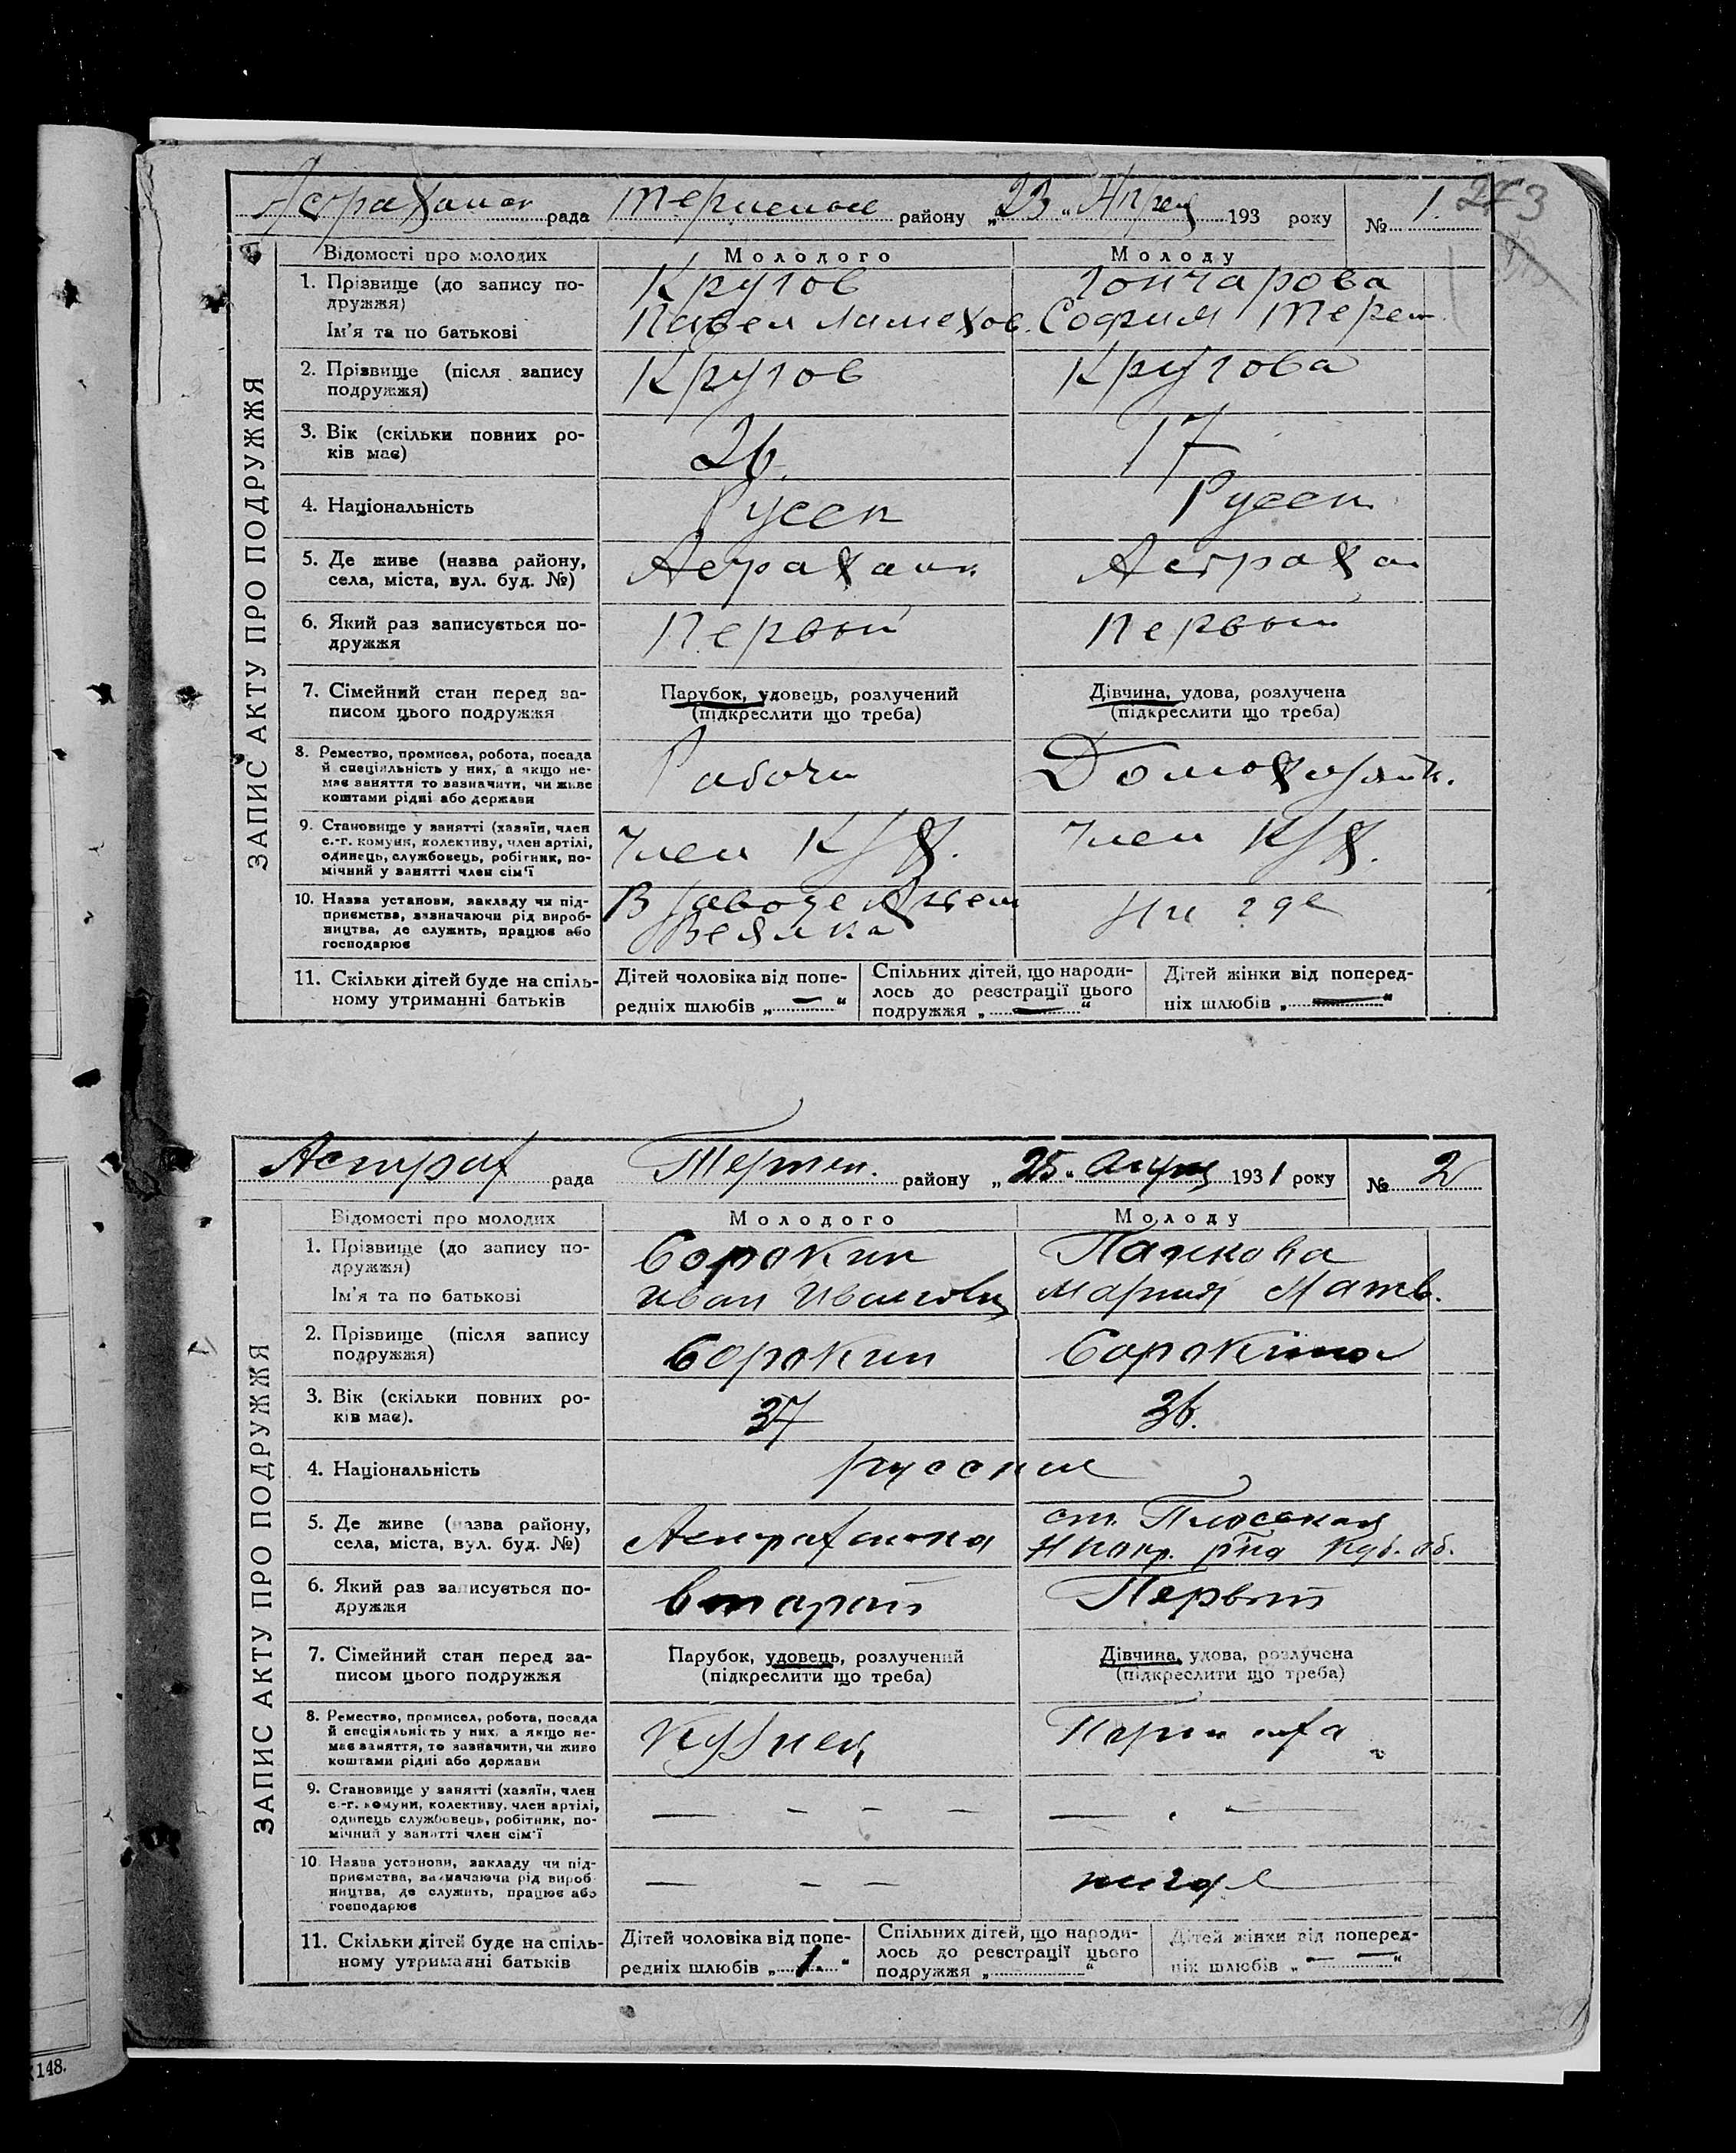 Астрахан рада Терпеньев району „23“ Апрел 193 року № 1. 273
Відомості про молодих Молодого Молоду
1. Прізвище (до запису по- Крутов Гончарова
дружжя)
Ім'я та по батькові Павел Софиия Терен
2. Прізвище (після запису Крутов Крутова
подружжя)
3. Вік (скільки повних ро- 26. 17
ків має)
4. Національність Русск Русск
5. Де живе (назва району, Астрахан Астрахан
села, міста, вул. буд. №)
6. Який раз записується по- Первый Первый
дружжя
7. Сімейний стан перед за- Парубок, удовець, розлучений Дівчина, удова, розлучена
писом цього подружжя (підкреслити що треба) (підкреслити що треба)
8. Ремество, промисел, робота, посада
й спеціяльність у них, а якщо не- Рабочи Домохазяйк.
має заняття то зазначити, чи живе
коштами рідні або держави
9. Становище у занятті (хазяїн, член
с.-г. комуни, колективу, член артілі, Член К Член К
одинець, службовець, робітник, по-
мічний у занятті член сім'ї
10. Назва установи, закладу чи під- В заводе
приємства, зазначаючи рід вироб- Ни где
ництва, де служить, працює або
господарює
11. Скільки дітей буде на спіль- Дітей чоловіка від попе- Спільних дітей, що народи- Дітей жінки від поперед-
ному утриманні батьків редніх шлюбів „—“ лось до реєстрації цього ніх шлюбів „—“
подружжя „—“
ЗАПИС АКТУ ПРО ПОДРУЖЖЯ
Астрах рада Терпен. району „25“ Апреля 1931 року № 2
Відомості про молодих Молодого Молоду
1. Прізвище (до запису по- Сорокин Пачкова
дружжя)
Ім'я та по батькові Иван Иванович Мария Матв.
2. Прізвище (після запису Сорокин Сорокина
подружжя)
3. Вік (скільки повних ро- 37 36.
ків має).
4. Національність русские
5. Де живе (назва району, Астраханка ст.
села, міста, вул. буд. №) р на Куб. об.
6. Який раз записується по- второй Первый
дружжя
7. Сімейний стан перед за- Парубок, удовець, розлучений Дівчина, удова, розлучена
писом цього подружжя (підкреслити що треба) (підкреслити що треба)
8. Ремество, промисел, робота, посада
й спеціяльність у них, а якщо не- Кузнец
має заняття, то зазначити, чи живе
коштами рідні або держави
9. Становище у занятті (хазяїн, член
с.-г. комуни, колективу, член артілі, — - - - — . —
одинець службовець, робітник, по-
мічний у занятті член сім'ї
10. Назва установи, закладу чи під-
приємства, зазначаючи рід вироб- — - — нигде
ництва, де служить, працює або
господарює
11. Скільки дітей буде на спіль- Дітей чоловіка від попе- Спільних дітей, що народи- Дітей жінки від поперед-
ному утриманні батьків редніх шлюбів „1“ лось до реєстрації цього ніх шлюбів „—“
подружжя „“
ЗАПИС АКТУ ПРО ПОДРУЖЖЯ
148.